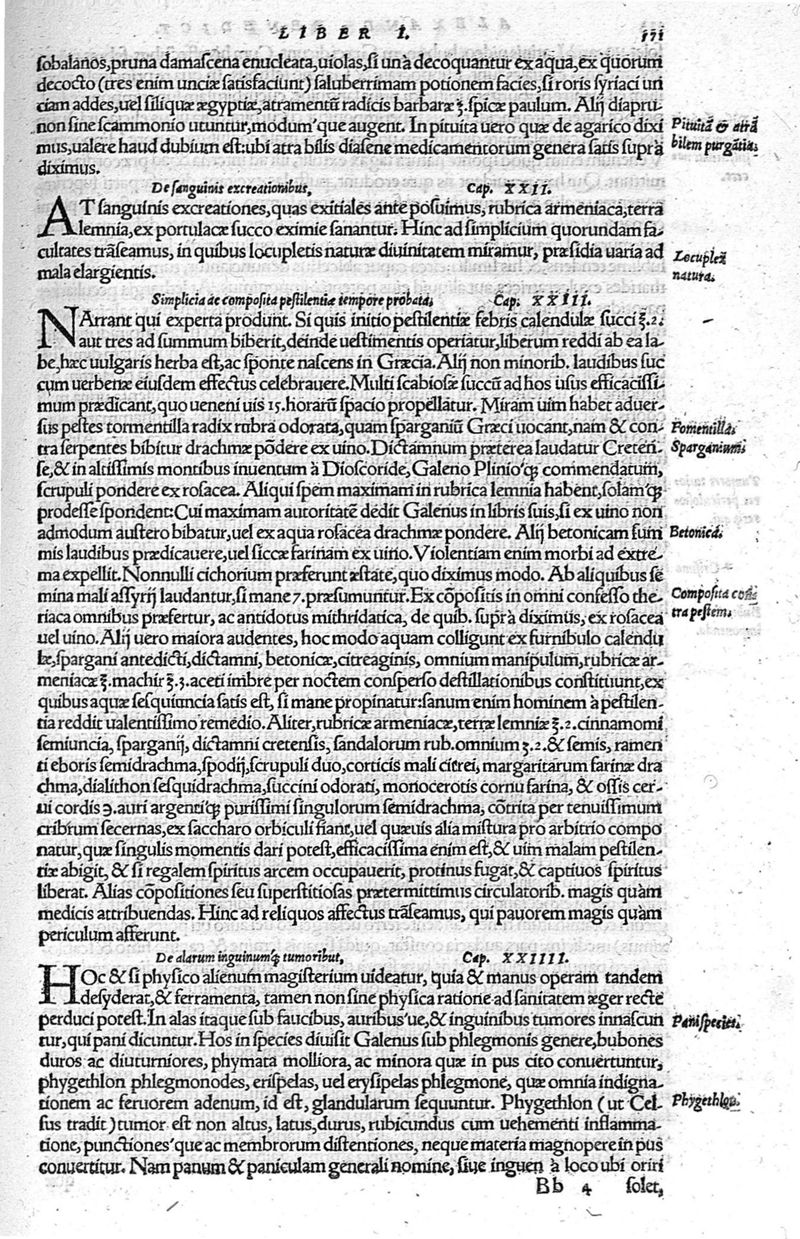 LIBER I.
sobalanos,pruna damascena enucleata,uiolas,si unà decoquantur ex aqua,ex quorum
decocto (tres enim unciæ satisfaciunt) saluberrimam potionem facies,si roris syriaci un
ciam addes,uel siliquæ ægyptiæ,atramentũ radicis barbaræ ℥.spicæ paulum. Alij diapru-
non sine scammonio utuntur,modum'que augent. In pituita uero quæ de agarico dixi
mus,ualere haud dubium est:ubi atra bilis diasene medicamentorum genera satis suprà
diximus.
Pituitã & atrã
bilem purgãtia.
De sanguinis excreationibus, Cap. XXII.
AT sanguinis excreationes,quas exitiales ante posuimus,rubrica armeniaca,terra
lemnia,ex portulacæ succo eximie sanantur. Hinc ad simplicium quorundam fa-
cultates trãseamus, in quibus locupletis naturæ diuinitatem miramur, præsidia uaria ad
mala elargientis.
Locuplex
natura.
Simplicia ac composita pestilentiæ tempore probata, Cap. XXIII.
NArrant qui experta produnt. Si quis initio pestilentiæ febris calendulæ succi ℥.2.
aut tres ad summum biberit,deinde uestimentis operiatur,liberum reddi ab ea la-
be,hæc uulgaris herba est,ac sponte nascens in Græcia. Alij non minorib. laudibus suc
cum uerbenæ eiusdem effectus celebrauere.Multi scabiosæ succũ ad hos usus efficacissi-
mum prædicant,quo ueneni uis 15.horarũ spacio propellatur. Miram uim habet aduer-
sus pestes tormentilla radix rubra odorata,quam sparganiũ Græci uocant,nam & con-
tra serpentes bibitur drachmæ põdere ex uino. Dictamnum præterea laudatur Creten-
se,& in altissimis montibus inuentum à Dioscoride,Galeno Plinio'q; commendatum,
scrupuli pondere ex rosacea. Aliqui spem maximam in rubrica lemnia habent,solam'q;
prodesse spondent:Cui maximam autoritatẽ dedit Galenus in libris suis,si ex uino non
admodum austero bibatur,uel ex aqua rosacea drachmæ pondere. Alij betonicam sum
mis laudibus prædicauere,uel siccæ farinam ex uino. Violentiam enim morbi ad extre-
ma expellit.Nonnulli cichorium præferunt æstate,quo diximus modo. Ab aliquibus se
mina mali assyrij laudantur,si mane 7.præsumuntur.Ex cõpositis in omni confesso the-
riaca omnibus præfertur, ac antidotus mithridatica, de quib. suprà diximus, ex rosacea
uel uino. Alij uero maiora audentes, hoc modo aquam colligunt ex furnibulo calendu
læ,spargani antedicti,dictamni, betonicæ,citreaginis, omnium manipulum,rubricæ ar-
meniacæ ℥.machir ℥.3.aceti imbre per noctem consperso destillationibus constituunt,ex
quibus aquæ sesquiuncia satis est, si mane propinatur:sanum enim hominem à pestilen-
tia reddit ualentissimo remedio. Aliter,rubricæ armeniacæ,terræ lemniæ ℥.2.cinnamomi
semiuncia, sparganij, dictamni cretensis, sandalorum rub.omnium ʒ.2.& semis, ramen
ti eboris semidrachma,spodij,scrupuli duo,corticis mali citrei, margaritarum farinæ dra
chma,dialithon sesquidrachma,succini odorati, monocerotis cornu farina, & ossis cer-
ui cordis ℈.auri argenti'q; purissimi singulorum semidrachma, cõtrita per tenuissimum
cribrum secernas,ex saccharo orbiculi fiant,uel quæuis alia mistura pro arbitrio compo
natur,quæ singulis momentis dari potest,efficacissima enim est,& uim malam pestilen-
tiæ abigit, & si regalem spiritus arcem occupauerit, protinus fugat,& captiuos spiritus
liberat. Alias cõpositiones seu superstitiosas prætermittimus circulatorib. magis quàm
medicis attribuendas. Hinc ad reliquos affectus trãseamus, qui pauorem magis quàm
periculum afferunt.
Sparganium.
Betonica.
Composita cõ
tra pestem.
De alarum inguinumq; tumoribus, Cap. XXIIII.
HOc & si physico alienum magisterium uideatur, quia & manus operam tandem
desyderat,& ferramenta, tamen non sine physica ratione ad sanitatem æger recte
perduci potest.In alas itaque sub faucibus, auribus'ue,& inguinibus tumores innascun
tur,qui pani dicuntur. Hos in species diuisit Galenus sub phlegmonis genere,bubones
duros ac diuturniores, phymata molliora, ac minora quæ in pus cito conuertuntur,
phygethlon phlegmonodes, erisipelas, uel erysipelas phlegmone, quæ omnia indigna-
tionem ac feruorem adenum, id est, glandularum sequuntur. Phygethlon (ut Cel-
sus tradit) tumor est non altus, latus,durus, rubicundus cum uehementi inflamma-
tione, punctiones'que ac membrorum distentiones, neque materia magnopere in pus
conuertitur. Nam panum & paniculam generali nomine, siue inguen à loco ubi oriri
Pani species.
Phygethlon.
Bb 4 solet,